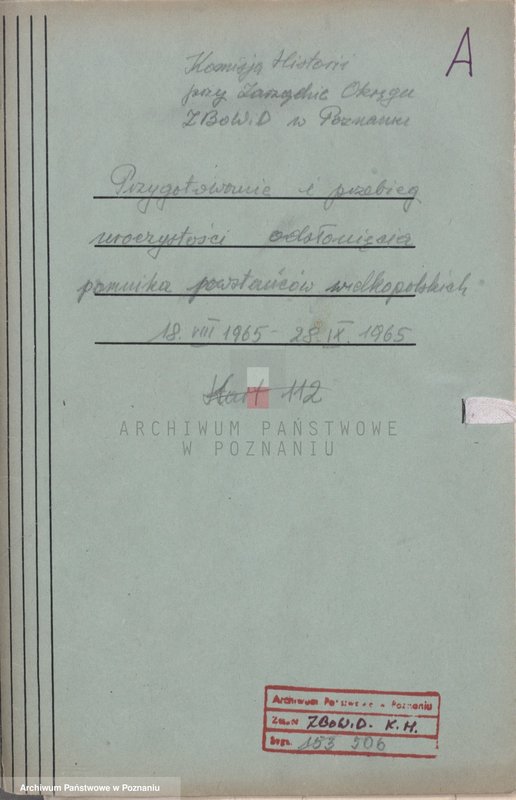 A
Komisja Historii
przy Zarządzie Okręgu
ZBoWiD w Poznaniu
Przygotowanie i przebieg
uroczystości odsłonięcia
pomnika powstańców wielkopolskich
18. VIII 1965 - 28. IX. 1965
Kart 112
ARCHIWUM PAŃSTWOWE
W POZNANIU
Archiwum Państwowe w Poznaniu
Zespół ZBoWiD. K.H.
Sygn. 153 506
Archiwum Państwowe w Poznaniu